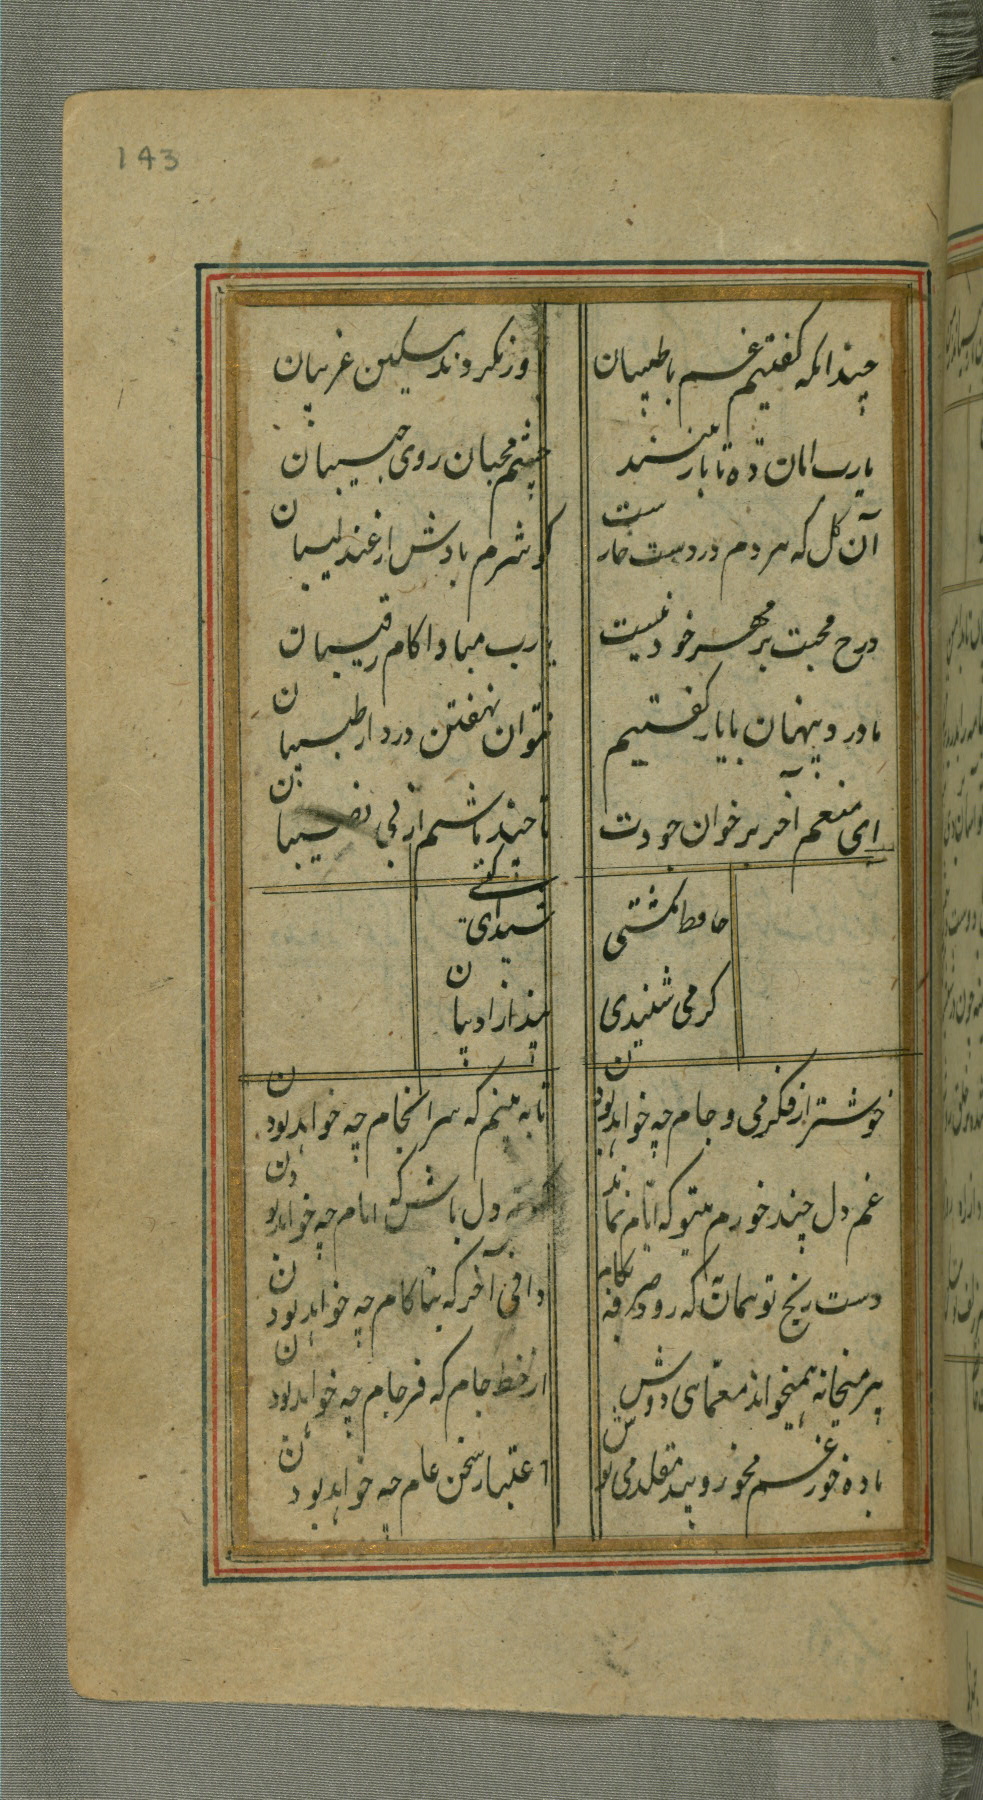 143
چندانکه گفتیم غم با طبیبان
درمان نکردند مسکین غریبان
یارب امان ده تا باز بینند
چشم محبان روی حبیبان
آن گل که هر دم در دست خاریست
کو شرم بادش از عندلیبان
درج محبت بر مهر خود نیست
یارب مبادا کام رقیبان
ما درد پنهان با یار گفتیم
نتوان نهفتن درد از طبیبان
ای منعم آخر بر خوان جودت
تا چند باشیم از بی نصیبان
حافظ نگشتی
شیدای گیتی
گر می شنیدی
پند از ادیبان
خوشتر از فکر می و جام چه خواهد بودن
تا به بینم که سرانجام چه خواهد بودن
غم دل چند خورم که ایام نماند
گو نه دل باش و نه ایام چه خواهد بودن
دست رنج تو همان که رود صرف بکام
دانی آخر که بناکام چه خواهد بودن
پیر میخانه همیخواند معمای دوش
از خط جام که فرجام چه خواهد بودن
باده خور غم مخور و پند مقلد می نیوش
اعتبار سخن عام چه خواهد بودن